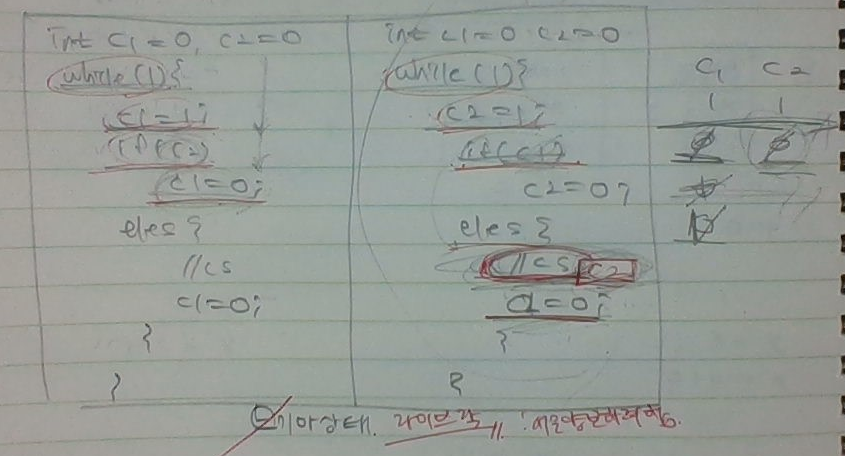 int C1=0, C2=0
while(1){
C1=1;
if(C2)
C1=0;
eles {
//cs
C1=0;
}
}
int C1=0 C2=0
while(1){
C2=1;
if(C1)
C2=0;
eles {
//cs C2
=0;
}
}
C1 C2
1 1
기아상태. 라이브락